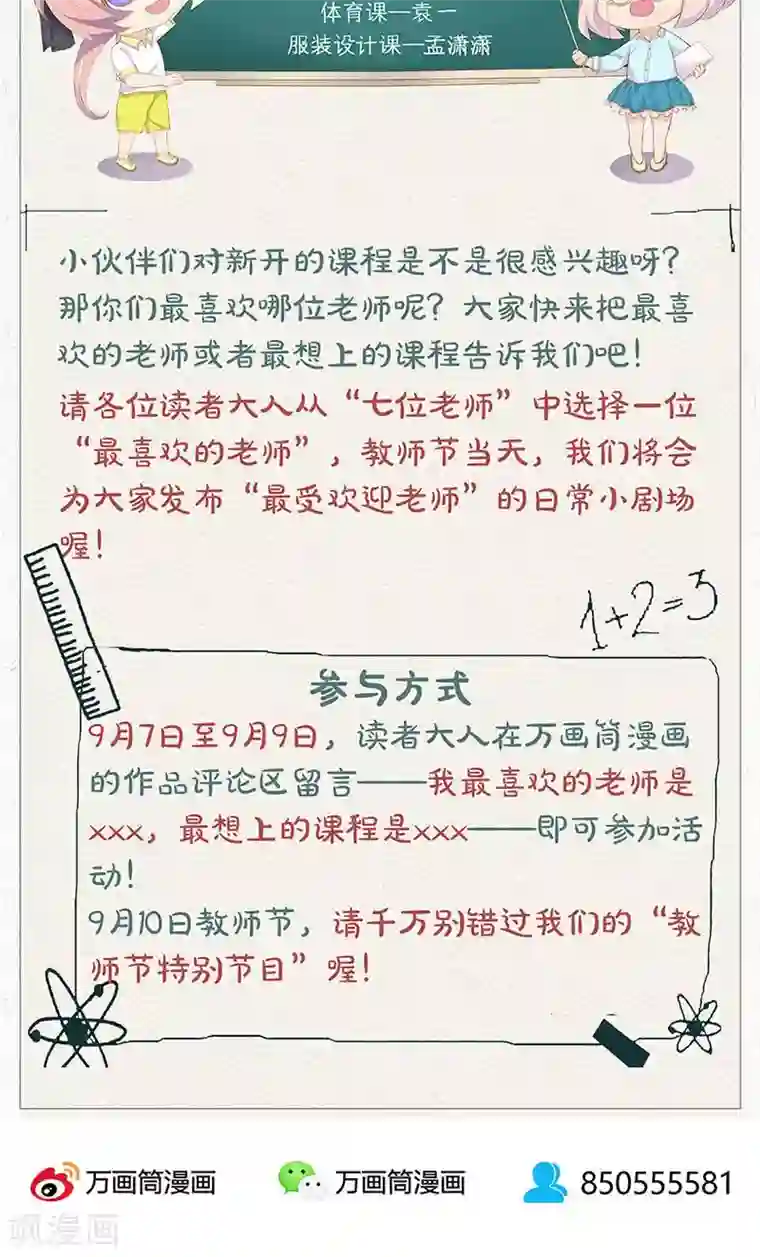 体育课—袁一
服装设计课—孟潇潇
小伙伴们对新开的课程是不是很感兴趣呀？
那你们最喜欢哪位老师呢？大家快来把最喜
欢的老师或者最想上的课程告诉我们吧！
请各位读者大人从“七位老师”中选择一位
“最喜欢的老师”，教师节当天，我们将会
为大家发布“最受欢迎老师”的日常小剧场
喔！
1+2=3
参与方式
9月7日至9月9日，读者大人在万画筒漫画
的作品评论区留言——我最喜欢的老师是
xxx，最想上的课程是xxx——即可参加活
动！
9月10日教师节，请千万别错过我们的“教
师节特别节目”喔！
万画筒漫画
万画筒漫画
850555581
飒漫画